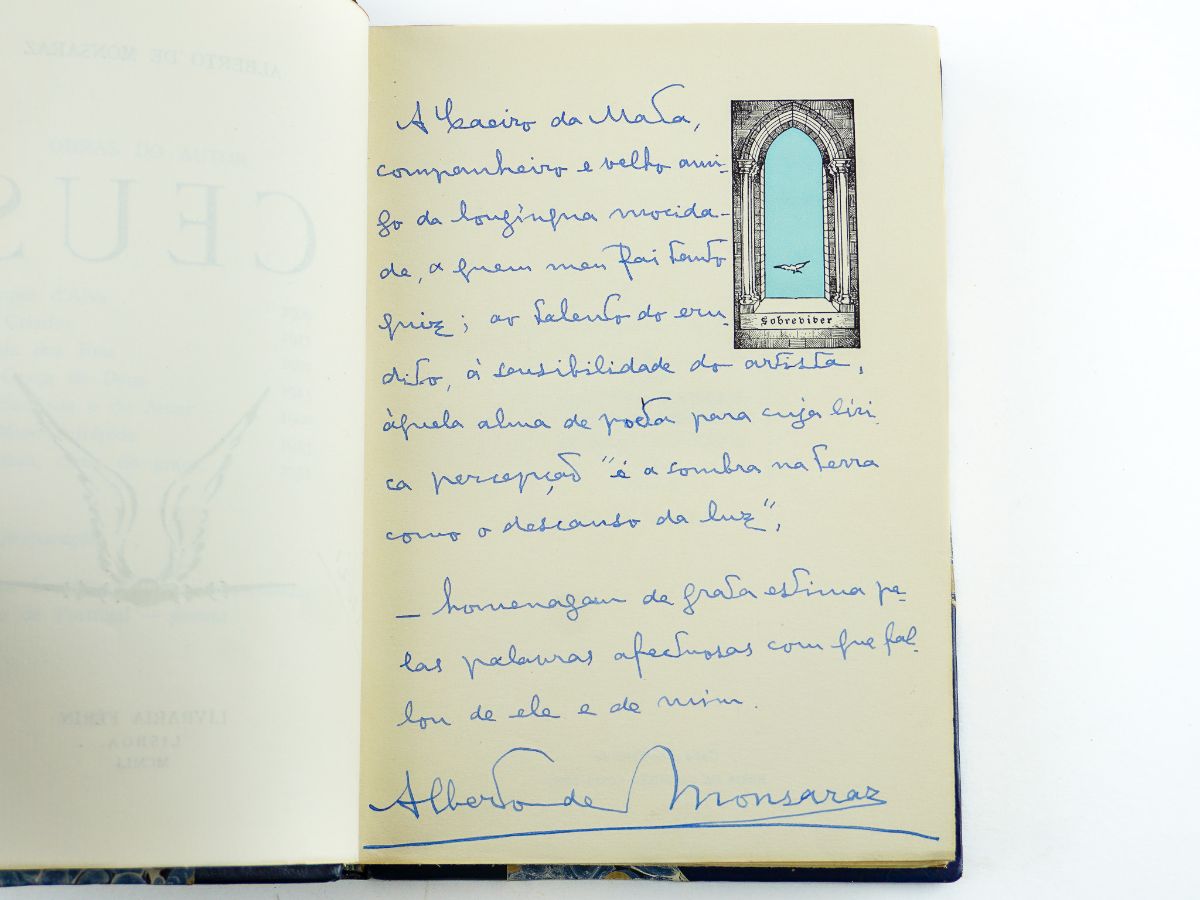 A Caeiro da Mata,
companheiro e velho ami-
go da longínqua mocida-
de, a quem meu Pai tanto
quiz; ao talento do eru-
dito, à sensibilidade do artista,
àquela alma de poeta para cuja líri-
ca percepção "é a sombra na terra
como o descanso da luz",
— homenagem de grata estima pe-
las palavras afectuosas com que fal-
lou de ele e de mim.
Alberto de Monsaraz
Sobreviver
ALBERTO DE MONSARAZ
OBRAS DO AUTOR
CEUS
LIVRARIA FERIN
LISBOA
MCMLI